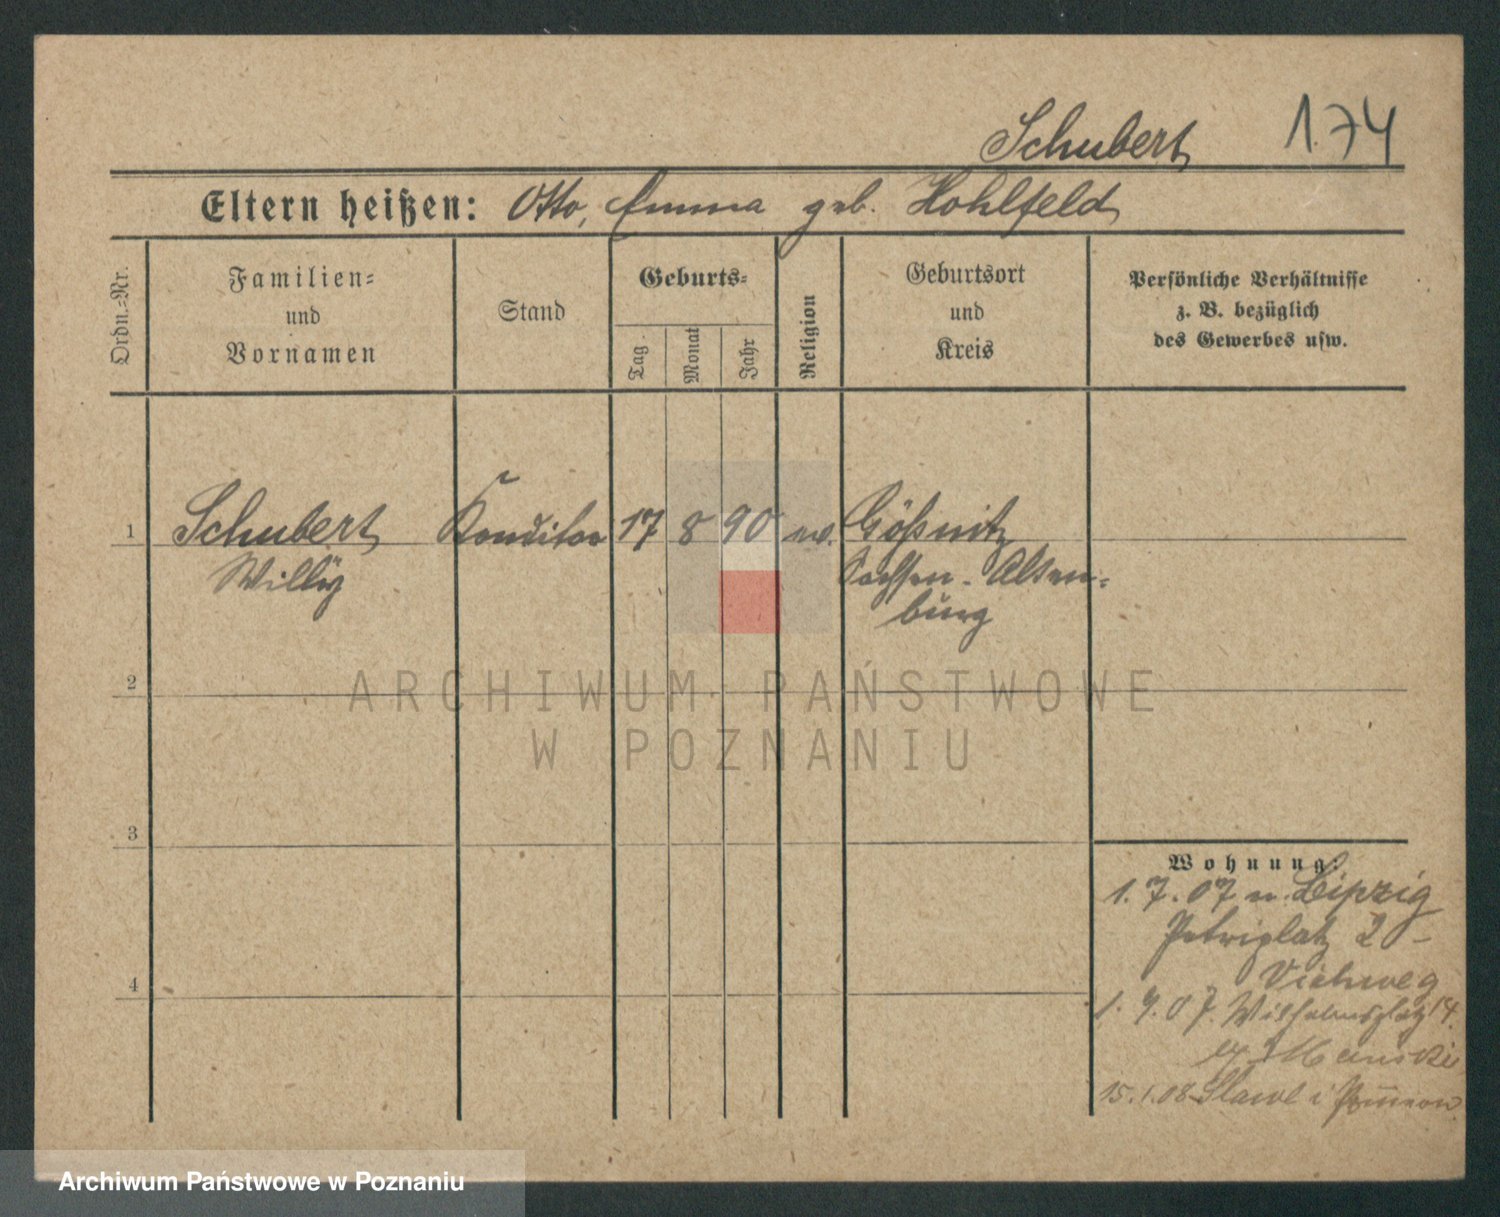 Schubert 174
Eltern heißen: Otto, Emma geb. Hohlfeld
Ordn.=Nr.
Familien=
und
Vornamen
Stand
Geburts=
Tag
Monat
Jahr
Religion
Geburtsort
und
Kreis
Persönliche Verhältnisse
z. B. bezüglich
des Gewerbes usw.
1 Schubert Konditor 17 8 90 ev. Gößnitz
Willÿ Sachsen-Alten=
burg
2
ARCHIWUM PAŃSTWOWE
W POZNANIU
3
4
Wohnung:
1.7.07 n. Leipzig
Petriplatz 2 -
Viehweg
1. 9. 07. Wilhelmsplatz 14.
15.1.08 i Pommern
Archiwum Państwowe w Poznaniu